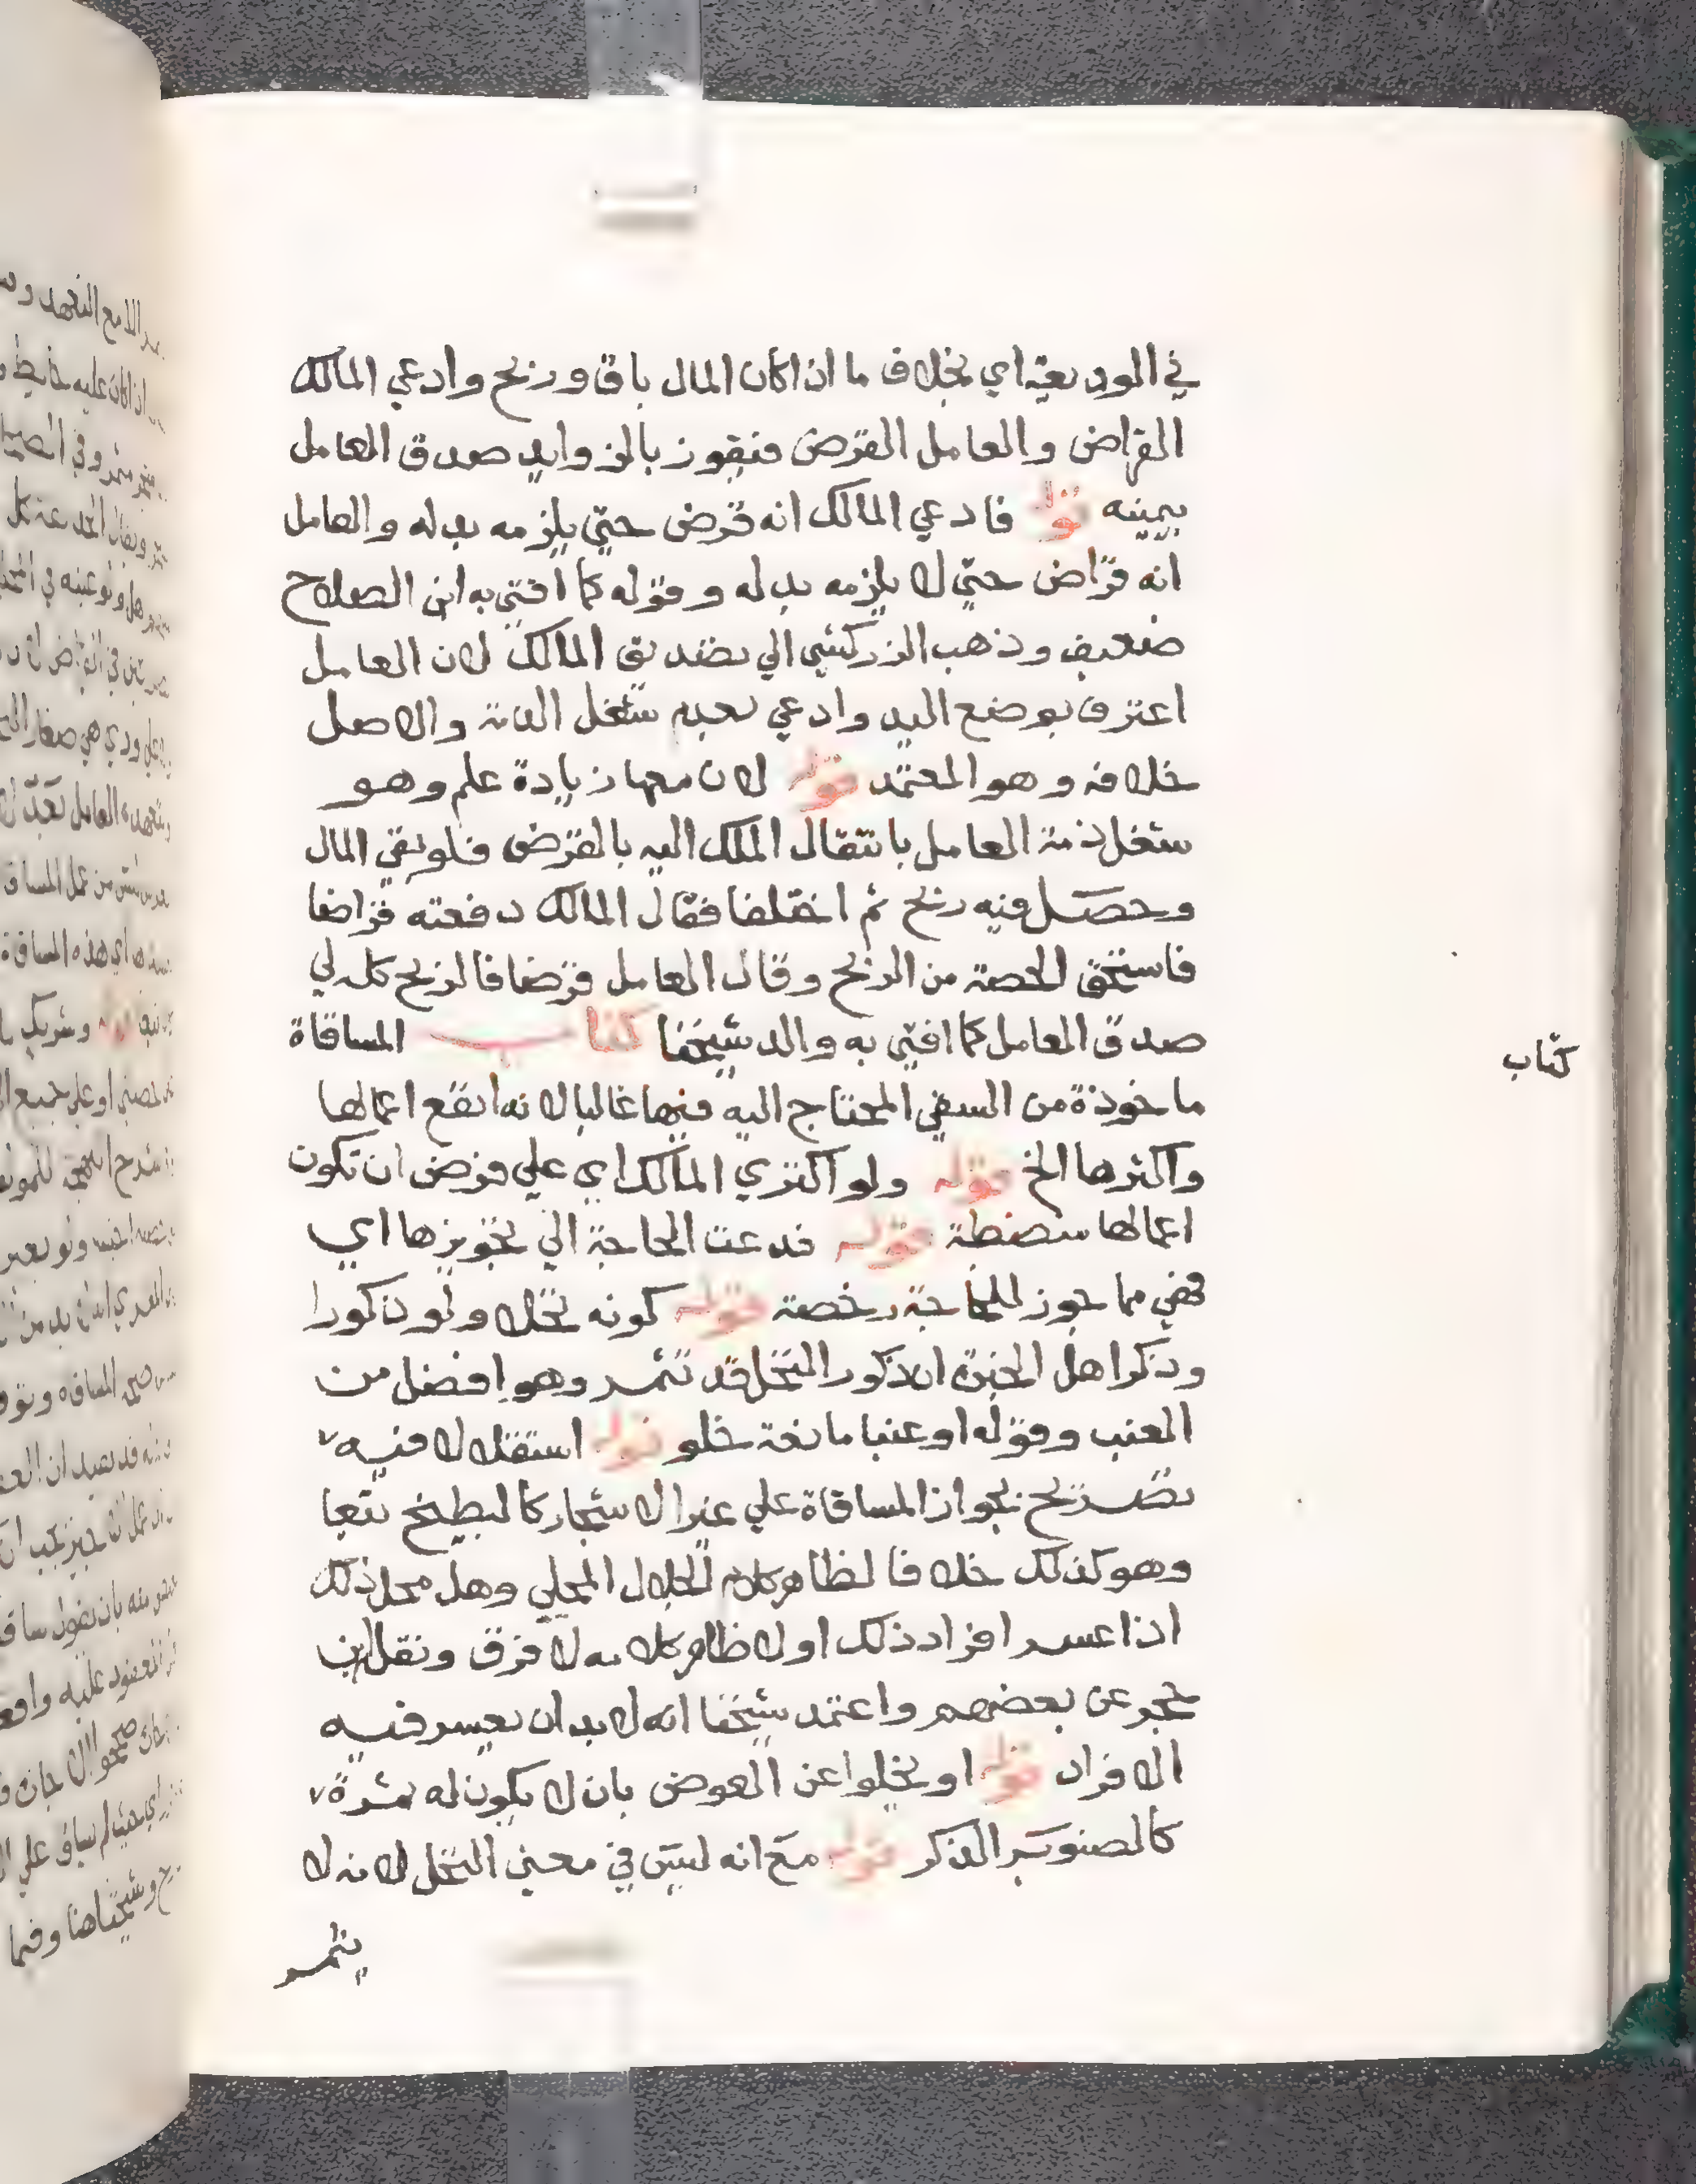 في الوديعة اي بخلاف ما اذا كان المال باق وربح وادعي المالك
القراض والعامل القرض فيفوز بالزوايد صدق العامل
بيمينه قوله فادعي المالك انه قرض حتي يلزمه بدله والعامل
انه قراض حتي لا يلزمه بدله وقوله كما افتي به ابن الصلاح
ضعيف وذهب الزركشي الي تصديق المالك لان العامل
اعترف بوضع اليد وادعي بعدم شغل الذمة والاصل
خلافه وهو المعتمد قوله لان معها زيادة علم وهو
شغل ذمة العامل بانتقال الملك اليه بالقرض فلو بقي المال
وحصل فيه ربح ثم اختلفا فقال المالك دفعته قراضا
فاستحق الحصة من الربح وقال العامل قرضا فالربح كله لي
صدق العامل كما افتي به والد شيخنا كتاب المساقاة
ماخوذة من السقي المحتاج اليه فيها غالبا لانه انفع اعمالها
واكثرها الخ قوله ولو اكتري المالك اي علي فرض ان تكون
اعمالها منضبطة قوله فدعت الحاجة الي تجويزها اي
فهي مما جوز للحاجة رخصة قوله كونه نخلا ولو ذكورا
وذكر اهل الخبرة ان ذكور النخل قد تثمر وهو افضل من
العنب وقوله او عنبا مانعة خلو قوله استقلالا فيه
تصريح بجواز المساقاة علي غير الاشجار كالبطيخ تبعا
وهو كذلك خلافا لظاهر كلام الجلال المحلي وهل محل ذلك
اذا عسر افراد ذلك او لا ظاهر كلامه لا فرق ونقل ابن
حجر عن بعضهم واعتمد شيخنا انه لا بد ان يعسر فيه
الافراد قوله او يخلوا عن العوض بان لا يكون له ثمرة
كالصنوبر الذكر قوله مع انه ليس في معني النخل لانه لا
يثمر
كتاب